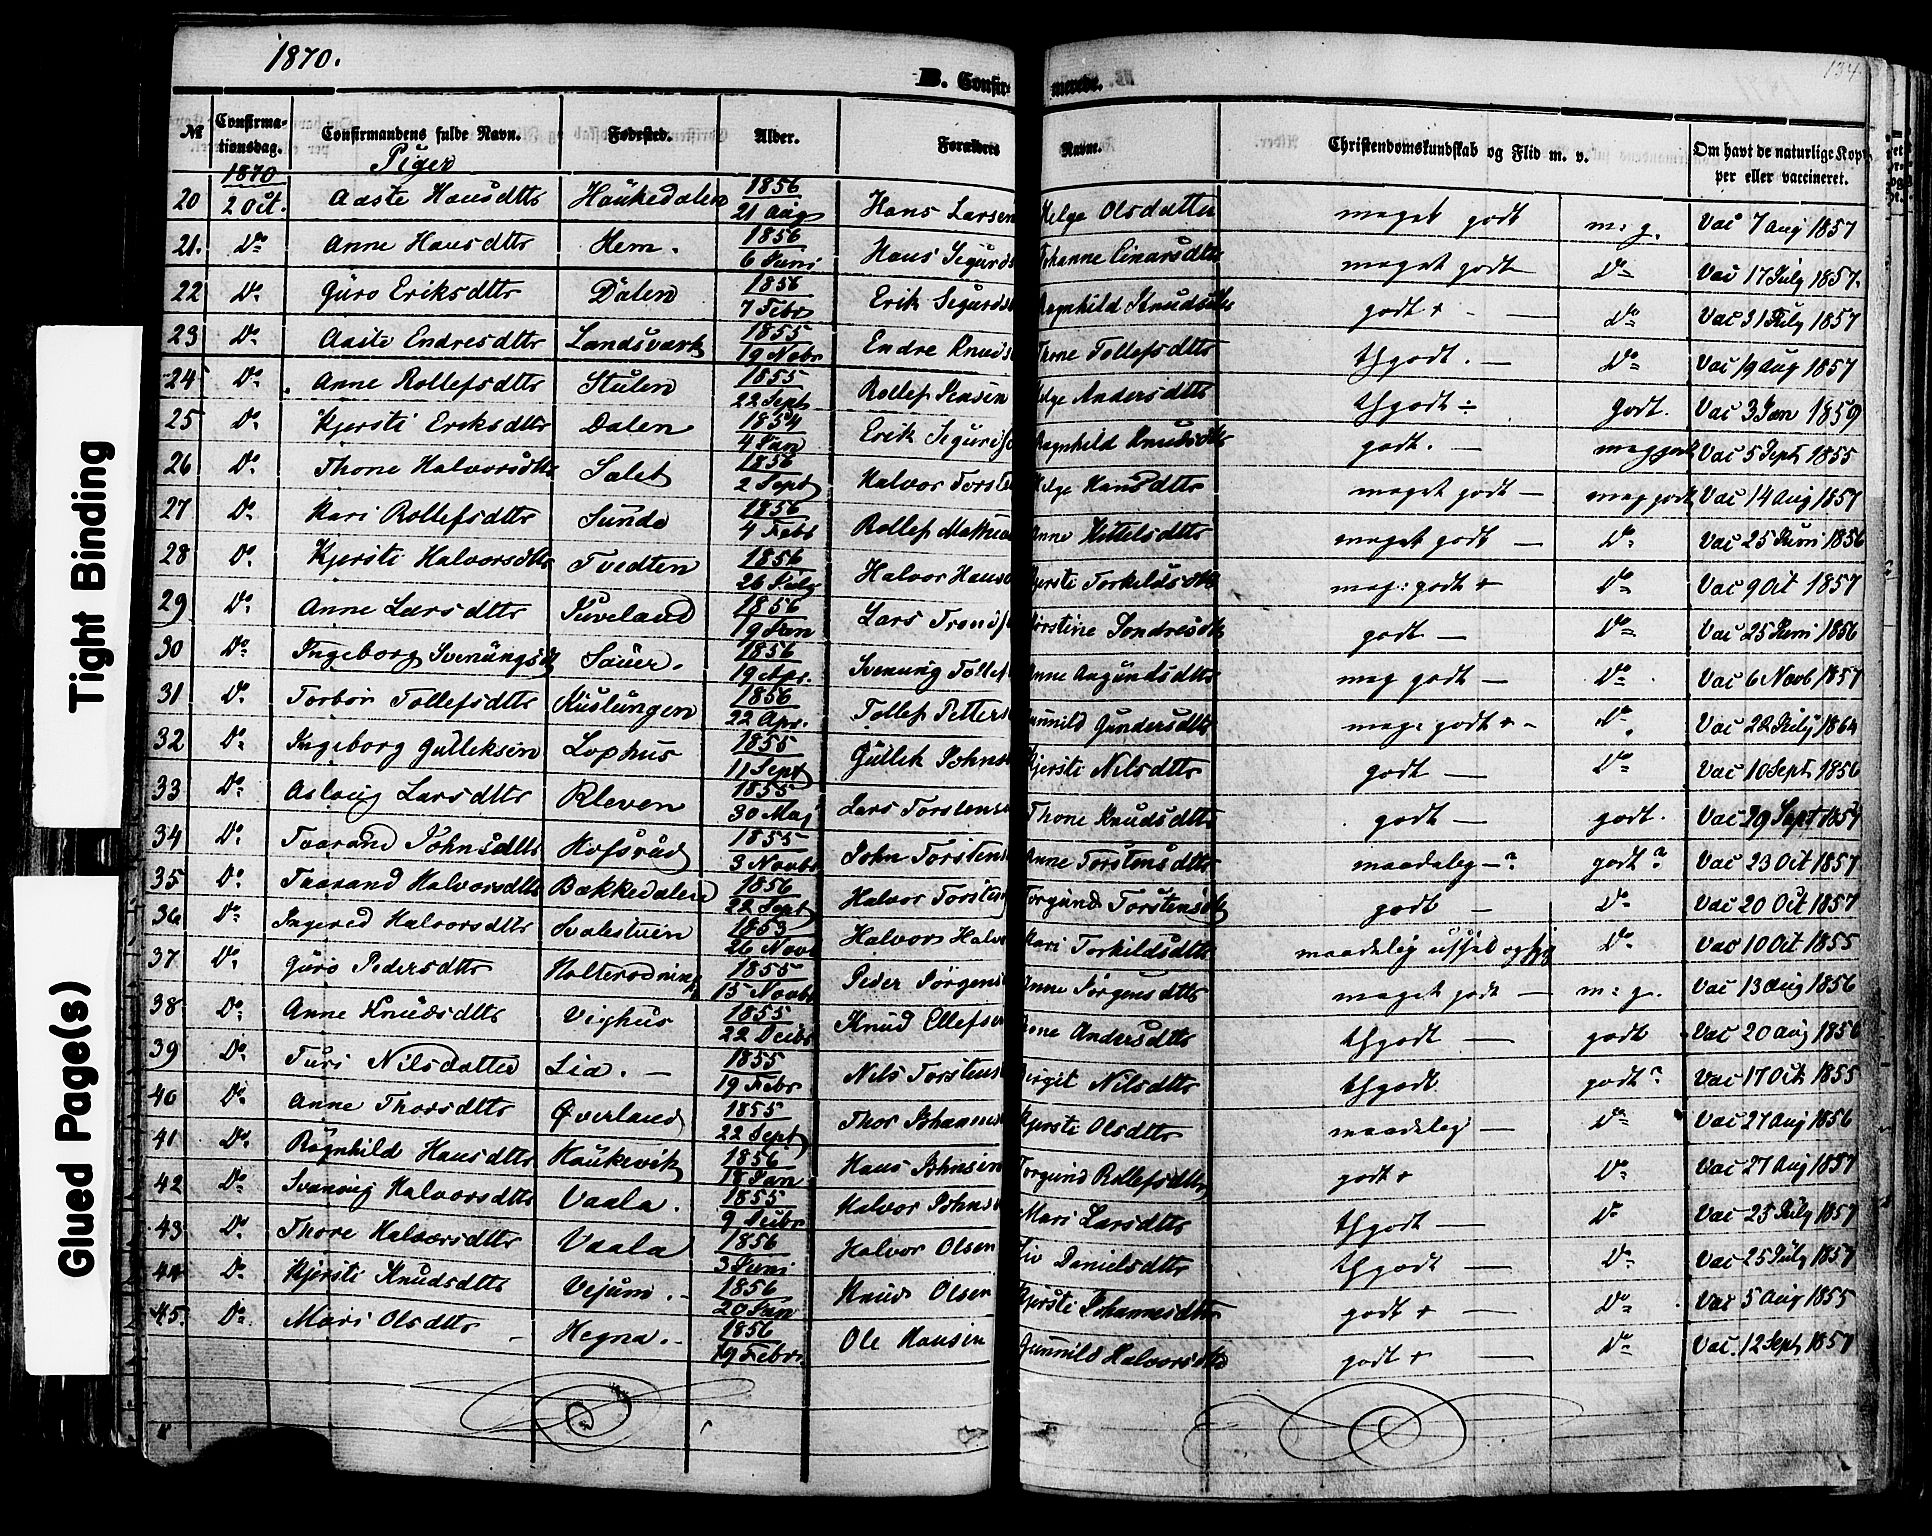 1870.
134
B. Confir-merede.
№ Confirma-tionsdag. Confirmandens fulde Navn. Fødested. Alder. Forældres Navne. Christendomskundskab og Flid m. v. Om havt de naturlige Kop-per eller vaccineret.
1870 Piger
20 2 Oct. Aaste Hansdttr Haukedalen 1856 21 Aug Hans Larsen Helge Olsdatter meget godt m: g. Vac 7 Aug 1857
21. Do Anne Hansdttr Hem. 1856 6 Juni Hans Sigurds Johanne Einarsdttr meget godt Do Vac 17 July 1857.
22 Do Guro Eriksdttr Dalen 1856 7 Febr Erik Sigurds Ragnhild Knudsdttr godt + Do Vac 31 July 1857
23 Do Aaste Endresdttr Landsværk 1855 19 Novbr Endre Knuds Thone Tollefsdttr thgodt. Do Vac 19 Aug 1857
24 Do Anne Rollefsdttr Stulen 1855 22 Sept Rollef Jensen Helge Andersdttr thgodt ÷ Godt. Vac 3 Jan 1859
25 Do Kjersti Eriksdttr Dalen 1854 4 Jan Erik Sigurds Ragnhild Knudsdttr godt. meg godt Vac 5 Sept 1855
26 Do Thone Halvorsdttr Salet 1856 2 Sept Halvor Torsten Helge Hansdttr meget godt meg godt Vac 14 Aug 1857
27 Do Kari Rollefsdttr Sunde 1856 4 Febr Rollef Anne Kittelsdttr meget godt Do Vac 25 Juni 1856
28 Do Kjersti Halvorsdttr Tvedten 1856 26 July Halvor Hans Kjersti Torkildsdttr meg: godt + Do Vac 9 Oct 1857
29 Do Anne Larsdttr Juveland 1856 19 Jan Lars Trondsen Kirstine Sondresdttr godt Do Vac 25 Juni 1856
30 Do Ingeborg Svenungsdt Sauer. 1856 19 Apr. Svenung Tollefs Anne Aagundsdttr meg godt Do Vac 6 Novb 1857
31 Do Torbør Tollefsdttr Kuslungen 1856 22 Apr. Tollef Petters Gunnild Gundersdttr mege godt + Do Vac 22 July 1864
32 Do Ingeborg Gulleksen Lophus 1855 11 Sept Gullek Johns Kjersti Nilsdttr godt Do Vac 10 Sept 1856
33 Do Aslaug Larsdttr Kleven 1855 30 Maj Lars Torstens Thone Knudsdttr godt godt. Vac 29 Sept 1857
34 Do Taarand Johnsdttr Kofsrud 1855 3 Novbr John Torstens Anne Torstensdttr maadeleg ? godt? Vac 23 Oct 1857
35 Do Taarand Halvorsdttr Bækkedalen 1856 22 Sept Halvor Torstens Torgund Torstensdt godt Do Vac 20 Oct 1857
36 Do Ingered Halvorsdttr Svalestuen 1853 26 Novb Halvor Halvo Kari Torkildsdttr maadeleg Do Vac 10 Oct 1855
37 Do Guro Pedersdttr Holterodning 1855 15 Novbr Peder Jørgens Anne Jørgensdttr meget godt m: g. Vac 13 Aug 1856
38 Do Anne Knudsdttr Vighus 1855 22 Decbr Knud Ellefsen Thone Andersdttr thgodt godt Vac 20 Aug 1856
39 Do Turi Nilsdatter Lia. 1855 19 Febr Nils Torstens Birgit Nilsdttr thgodt godt? Vac 17 Oct 1855
40 Do Anne Thorsdttr Øverland 1855 22 Sept Thor Johannes Kjersti Olsdttr maadeleg Do Vac 27 Aug 1856
41 Do Ragnhild Hansdttr Haukevik 1856 18 Jan Hans Johnsen Torgund Rollefsdttr godt + Do Vac 27 Aug 1857
42 Do Svanaug Halvorsdttr Vaala. 1855 9 Decbr Halvor Johns Mari Larsdttr thgodt Do Vac 25 July 1857
43 Do Thore Halvorsdttr Vaala 1856 3 Juni Halvor Olsen Liv Danielsdttr thgodt Do Vac 25 July 1857
44 Do Kjersti Knudsdttr Vejum. 1856 20 Jan Knud Olsen Kjersti Johannesdttr godt + Do Vac 5 Aug 1855
45. Do Mari Olsdttr Hegna. 1856 19 Febr. Ole Hansen Gunnild Halvorsdttr godt + Do Vac. 12 Sept 1857
Tight Binding
Glued Page(s)